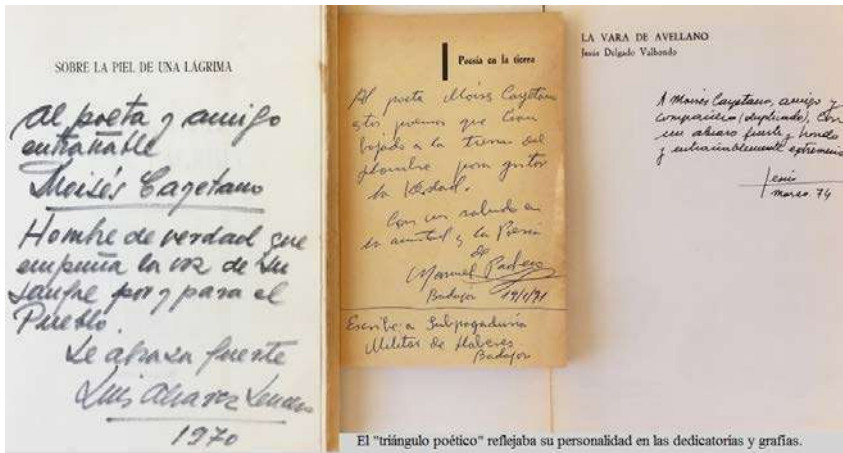 SOBRE LA PIEL DE UNA LÁGRIMA
Al poeta y amigo
entrañable
Moisés Cayetano
Hombre de verdad que
empuña la voz de su
sangre por y para el
Pueblo.
Le abraza fuerte
Luis Alvarez Lencero
1970
Poesía en la tierra
Al poeta Moises Cayetano
estos poemas que han
bajado a la tierra del
Hombre para gritar
la Verdad.
Con un saludo en
la amistad y la Poesia
de
Manuel Pacheco
Badajoz 19/1/71
Escribe a Subpagaduría
Militar de Haberes
Badajoz
LA VARA DE AVELLANO
Jesús Delgado Valhondo
A Moisés Cayetano, amigo y
compañero (duplicado), con
un abrazo fuerte, hondo
y entrañablemente extremeño
Jesús
marzo. 74
El "triángulo poético" reflejaba su personalidad en las dedicatorias y grafías.